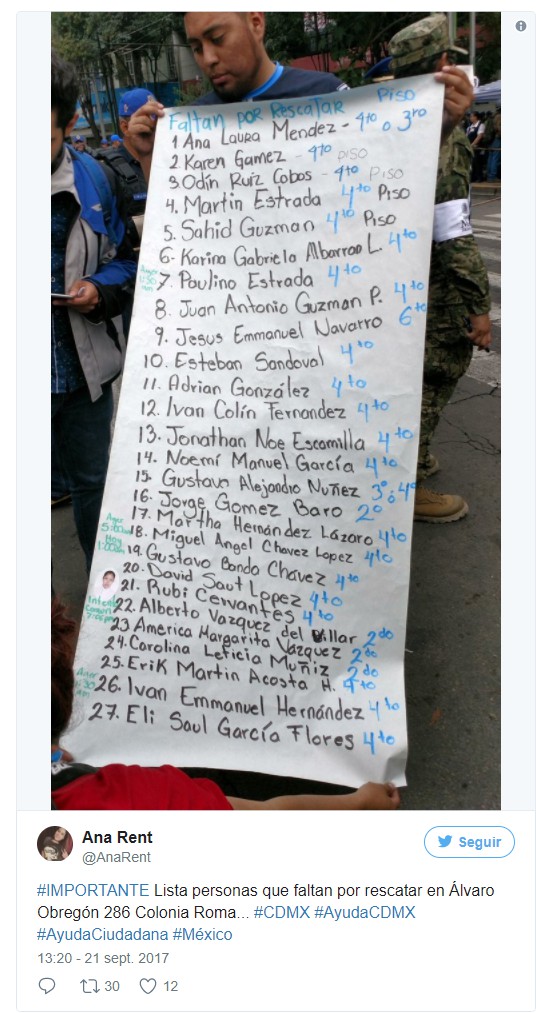 Faltan por Rescatar Piso
1 Ana Laura Mendez - 4to o 3ro
2 Karen Gamez - 4to PISO
3. Odín Ruíz Cobos - 4to PISO
4. Martin Estrada 4to Piso
5. Sahid Guzman 4to Piso
6- Karina Gabriela Albarran L. 4to
7. Paulino Estrada 4to
8. Juan Antonio Guzman P. 4to
9. Jesus Emmanuel Navarro 6to
10. Esteban Sandoval 4to
11. Adrian González 4to
12. Ivan Colín Fernandez 4to
13. Jonathan Noe Escamilla 4to
14. Noemí Manuel García 4to
15. Gustavo Alejandro Nuñez 3° ó 4°
16. Jorge Gomez Baro 2°
17. Martha Hernández Lázaro 4to
18. Miguel Angel Chavez Lopez 4to
19. Gustavo Bando Chávez 4to
20. David Saut Lopez 4to
21. Rubi Cervantes 4to
22. Alberto Vazquez del Villar 2do
23 America Margarita Vázquez 2do
24. Carolina Leticia Muñiz 2do
25. Erik Martin Acosta H. 4to
26. Ivan Emmanuel Hernández 4to
27. Eli Saul García Flores 4to
Ana Rent
@AnaRent
Seguir
#IMPORTANTE Lista personas que faltan por rescatar en Álvaro
Obregón 286 Colonia Roma... #CDMX #AyudaCDMX
#AyudaCiudadana #México
13:20 - 21 sept. 2017
30
12